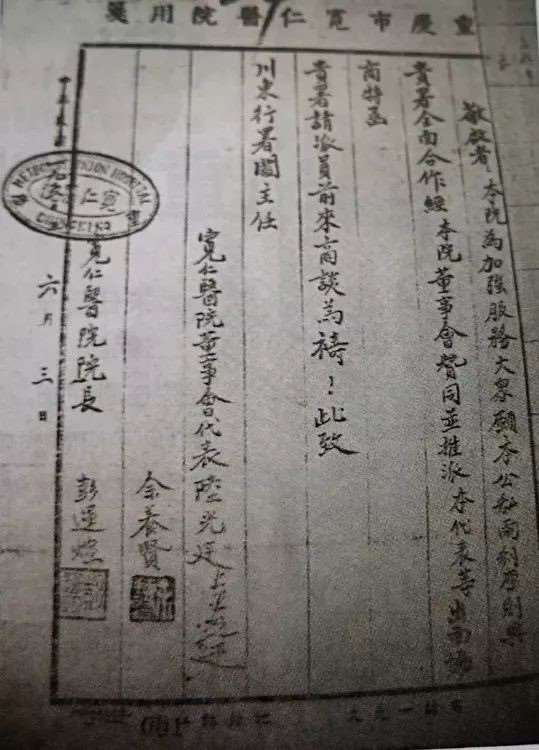 重慶市寬仁醫院用箋
敬啟者 本院為加強服務大眾願本公私兩利原則與
貴署全面合作經本院董事會贊同並推派本代表等出面協
商特函
貴署請派員前來商談為禱！此致
川東行署閻主任
寬仁醫院董事會代表 陸光廷
余養賢
寬仁醫院院長 彭運煃
METHODIST UNION HOSPITAL
寬仁
重
CHUNGKING
六月三日